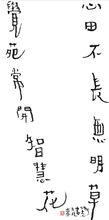 心田不長無明草
覺苑常開智慧花